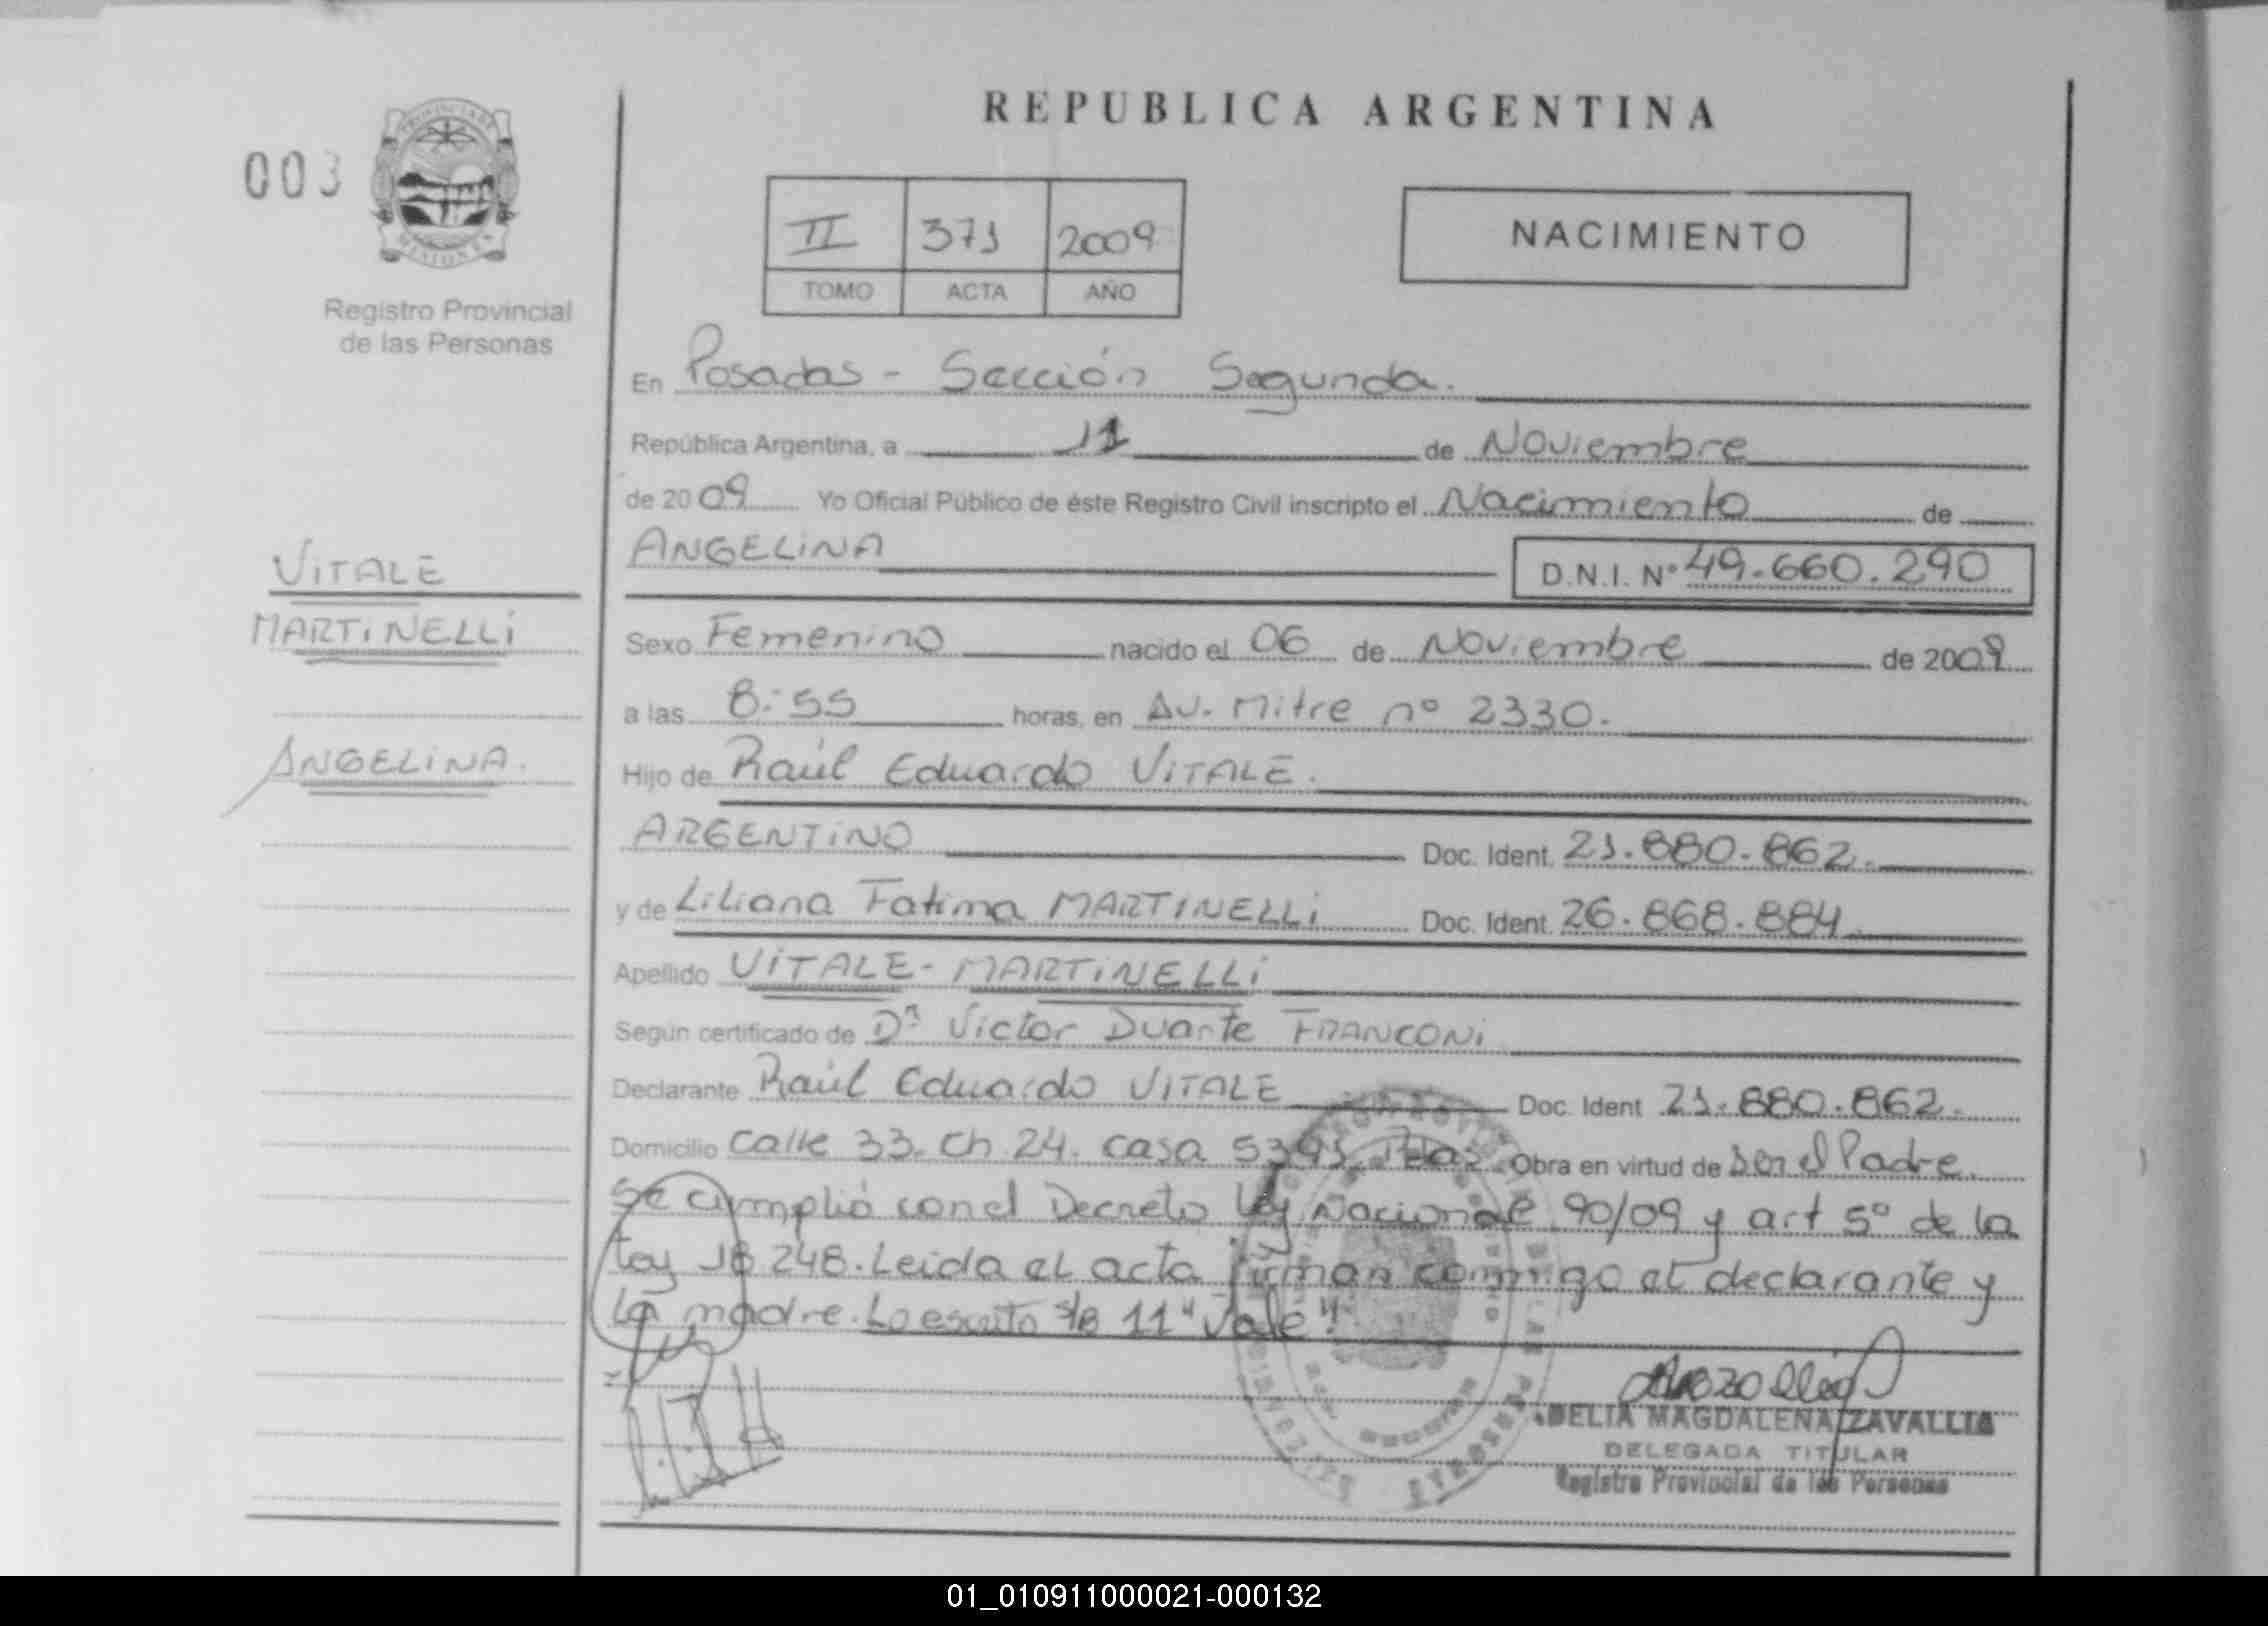 REPUBLICA ARGENTINA
003
PROVINCIA DE
MISIONES
Registro Provincial
de las Personas
II 371 2009
TOMO ACTA AÑO
NACIMIENTO
En Posadas - Sección Segunda.
República Argentina, a 11 de Noviembre
de 2009 Yo Oficial Público de éste Registro Civil inscripto el Nacimiento de
ANGELINA D.N.I. Nº 49.660.290
VITALE
MARTINELLI
ANGELINA.
Sexo Femenino nacido el 06 de Noviembre de 2009
a las 8:55 horas, en Av. Mitre nº 2330.
Hijo de Raúl Eduardo VITALE.
ARGENTINO Doc. Ident. 21.880.862.
y de Liliana Fatima MARTINELLI Doc. Ident. 26.868.884
Apellido VITALE - MARTINELLI
Según certificado de Dr Victor Duarte FRANCONI
Declarante Raúl Eduardo VITALE Doc. Ident 21.880.862.
Domicilio Calle 33. Ch 24. casa Obra en virtud de ser el Padre.
Se cumplió con el Decreto Ley Nacional 90/09 y art 5º de la
Ley 18 248. Leida el acta firman conmigo el declarante y
La madre. Lo escrito s/b 11 "Vale".
DELIA MAGDALENA ZAVALLIA
DELEGADA TITULAR
Registro Provincial de las Personas
01_010911000021-000132